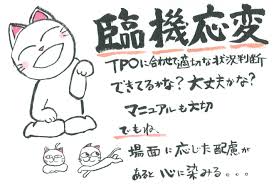 臨機応変
TPOに合わせて適切な状況判断
できてるかな?大丈夫かな?
マニュアルも大切
でもね、
場面に応じた配慮が
あると心に染みる・・・